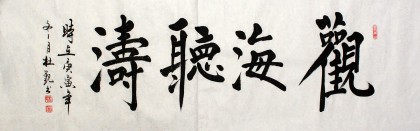 觀海聽濤
時在庚寅年
冬月杜凱書